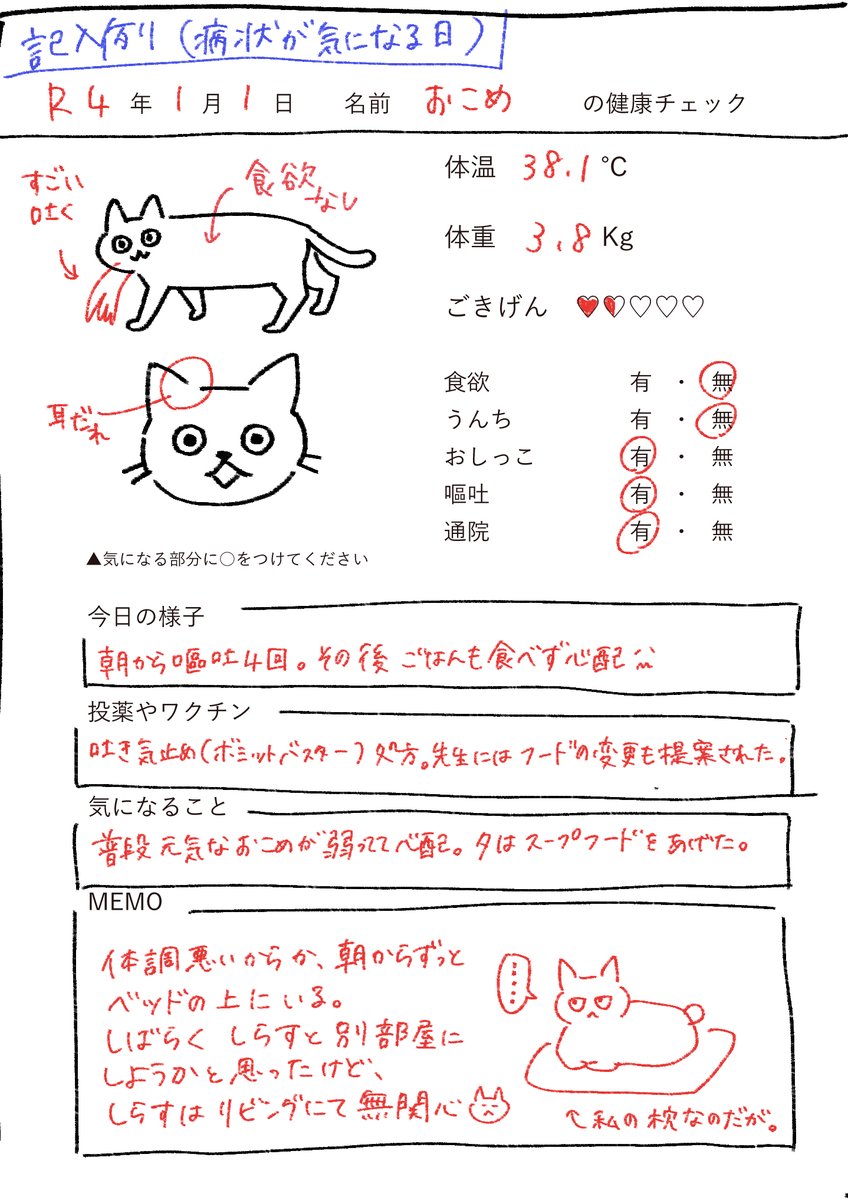 記入例(病状が気になる日)
R4年1月1日 名前 おこめ の健康チェック
すごい
吐く
食欲
なし
体温 38.1℃
体重 3.8Kg
ごきげん ♥♥♡♡♡
耳だれ
食欲 有・無
うんち 有・無
おしっこ 有・無
嘔吐 有・無
通院 有・無
▲気になる部分に○をつけてください
今日の様子
朝から嘔吐4回。その後ごはんも食べず心配
投薬やワクチン
吐き気止め(ボミットバスター)処方。先生にはフードの変更も提案された。
気になること
普段元気なおこめが弱ってて心配。夕はスープフードをあげた。
MEMO
体調悪いからか、朝からずっと
ベッドの上にいる。
しばらくしらすと別部屋に
しようかと思ったけど、
しらすはリビングにて無関心
←私の枕なのだが。